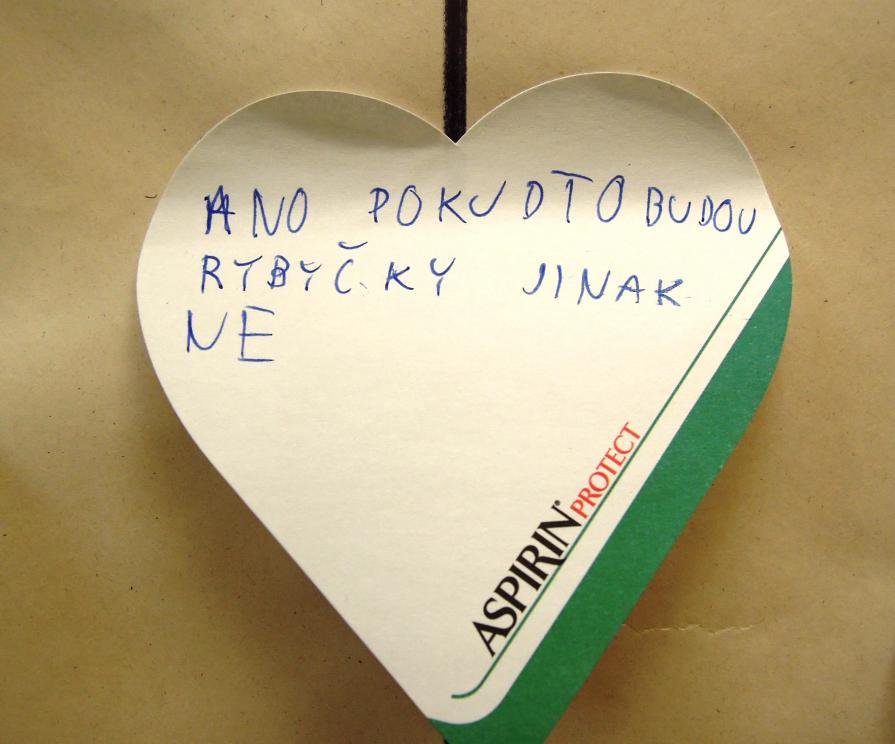 ANO POKUD TO BUDOU
RYBYČKY JINAK
NE
ASPIRIN® PROTECT